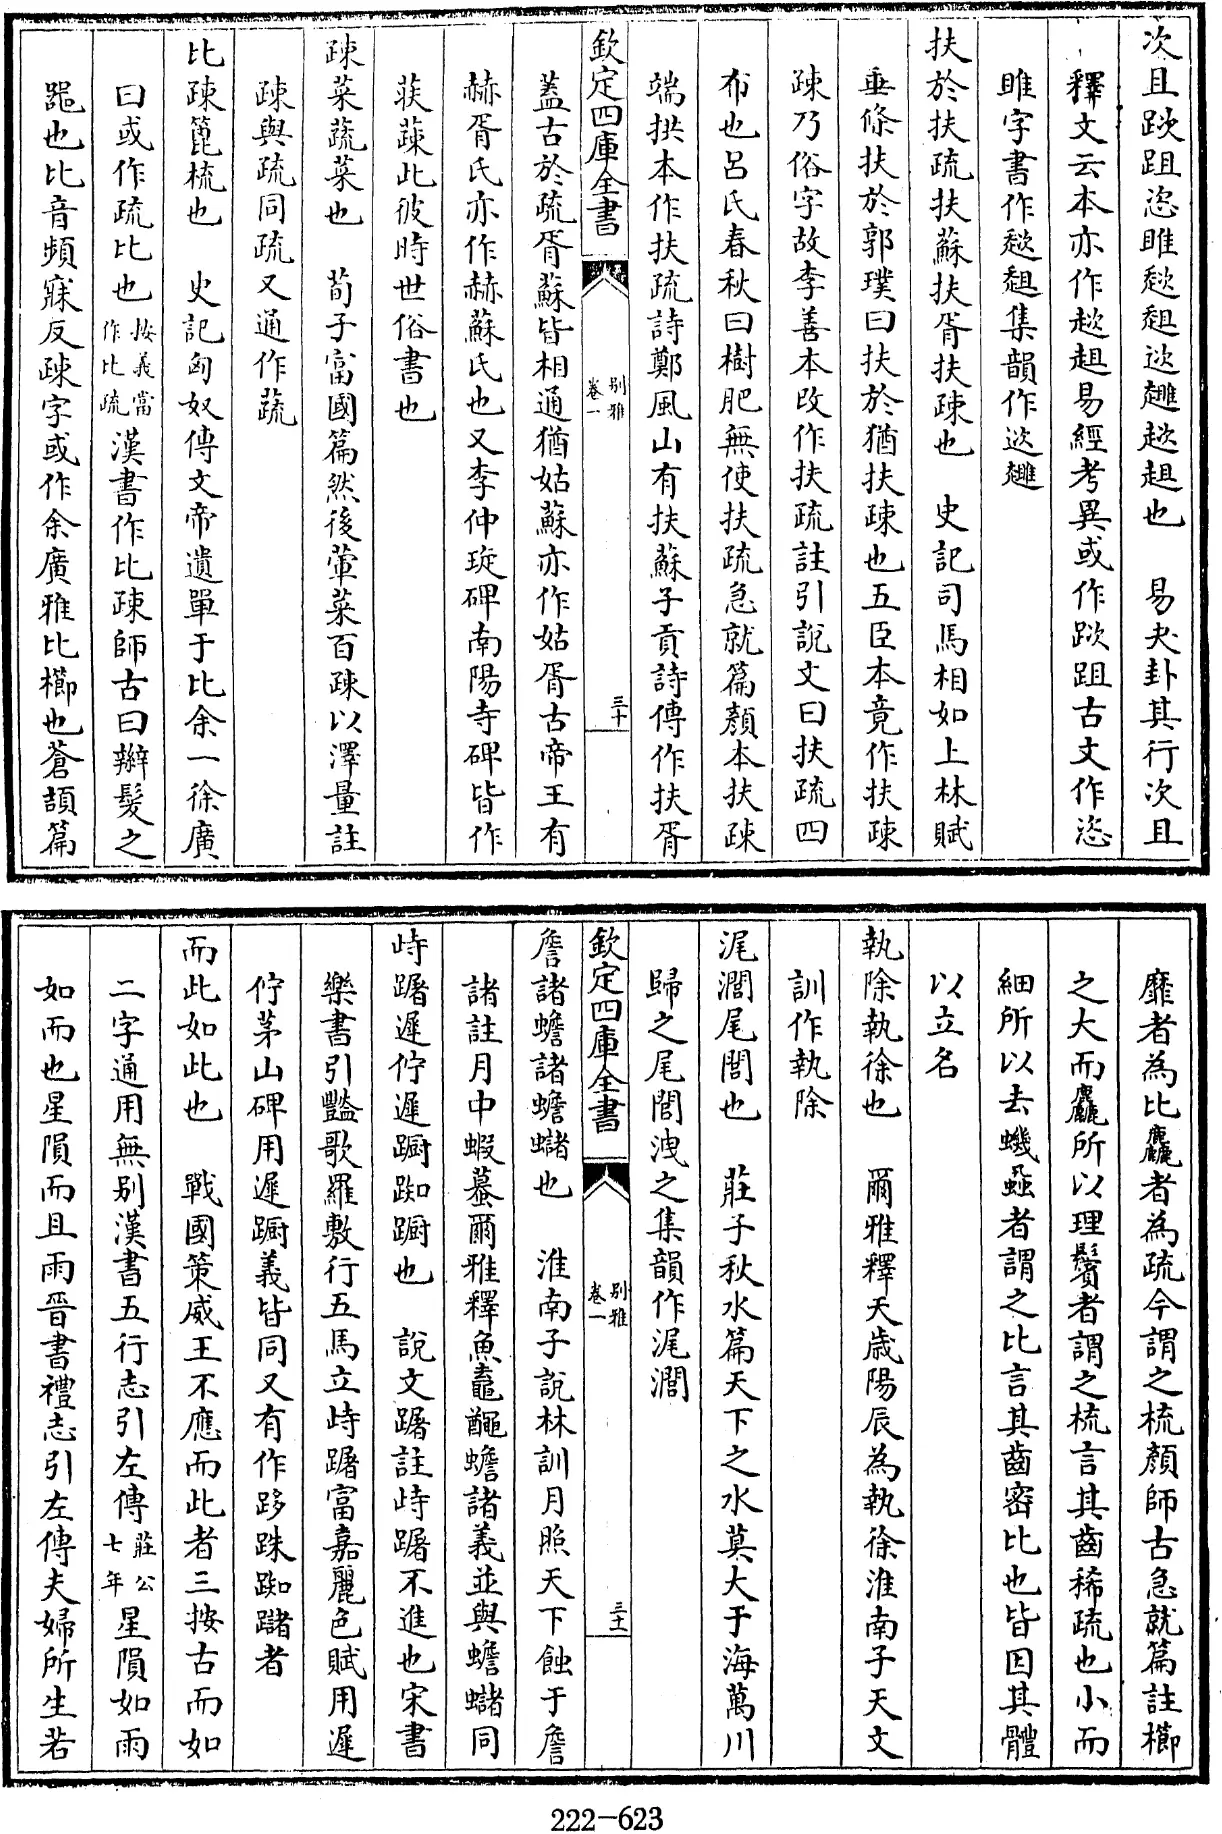 次且趑跙恣睢趑趄䢐䞣趑趄也　易夬卦其行次且
釋文云本亦作趑趄易經考異或作趑跙古文作恣
睢字書作趑趄集韻作䢐䞣
扶於扶疏扶蘇扶胥扶疎也　史記司馬相如上林賦
垂條扶於郭璞曰扶於猶扶疎也五臣本竟作扶疎
疎乃俗字故李善本改作扶疏註引說文曰扶疏四
布也呂氏春秋曰樹肥無使扶疏急就篇顏本扶疎
端拱本作扶疏詩鄭風山有扶蘇子貢詩傳作扶胥
欽定四庫全書
別雅
卷一
三十
蓋古於疏胥蘇皆相通猶姑蘇亦作姑胥古帝王有
赫胥氏亦作赫蘇氏也又李仲琁碑南陽寺碑皆作
䒀蔬此彼時世俗書也
疎菜蔬菜也　荀子富國篇然後葷菜百疎以澤量註
疎與疏同疏又通作蔬
比疎篦梳也　史記匈奴傳文帝遺單于比余一徐廣
曰或作疏比也按義當作比疏漢書作比疎師古曰辮髮之
飾也比音頻寐反疎字或作余廣雅比櫛也蒼頡篇
靡者為比麤者為疏今謂之梳顏師古急就篇註櫛
之大而麤所以理鬢者謂之梳言其齒稀疏也小而
細所以去蟣蝨者謂之比言其齒密比也皆因其體
以立名
執除執徐也　爾雅釋天歲陽辰為執徐淮南子天文
訓作執除
浘澗尾閭也　莊子秋水篇天下之水莫大于海萬川
歸之尾閭洩之集韻作浘澗
欽定四庫全書
別雅
卷一
三十一
詹諸蟾諸蟾蠩也　淮南子說林訓月照天下蝕于詹
諸註月中蝦蟇爾雅釋魚鼁𪓰蟾諸義並與蟾蠩同
峙躇遲佇遲蹰踟蹰也　說文躇註峙躇不進也宋書
樂書引豔歌羅敷行五馬立峙躇富嘉麗色賦用遲
佇茅山碑用遲蹰義皆同又有作跢跦踟躕者
而此如此也　戰國策威王不應而此者三按古而如
二字通用無別漢書五行志引左傳莊公七年星隕如雨
如而也星隕而且雨晉書禮志引左傳夫婦所生若
222-623